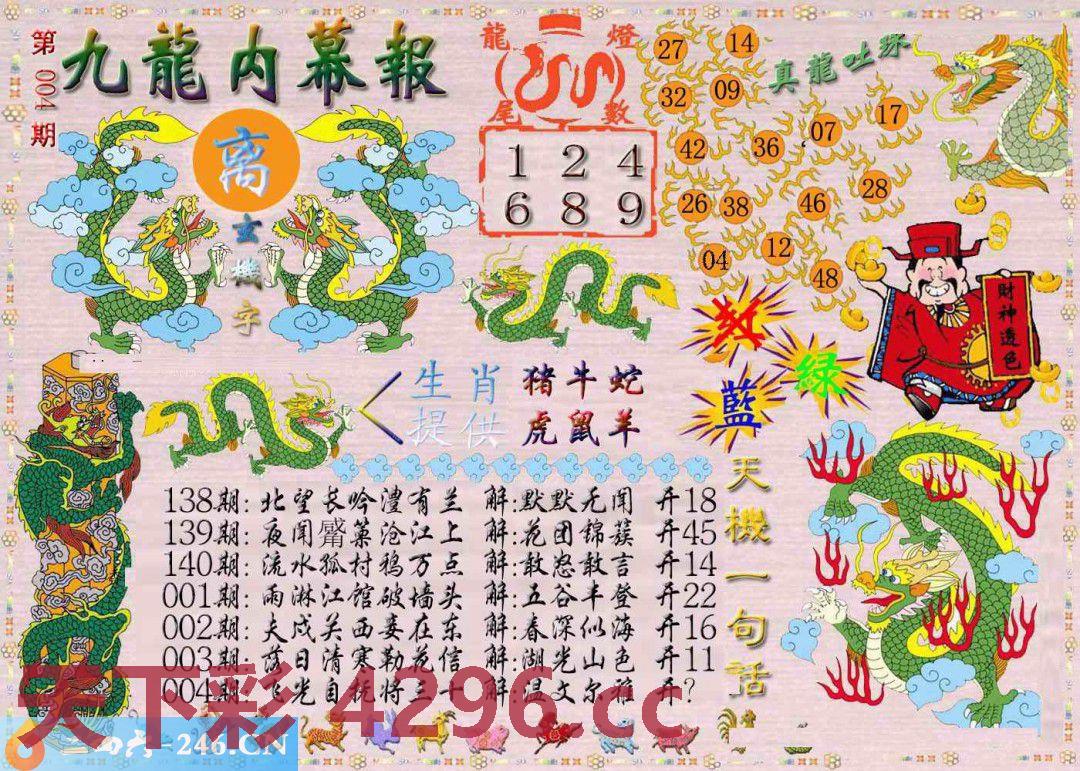 第004期
九龍内幕報
离
玄機字
龍燈尾數
1 2 4
6 8 9
真龍吐珠
27 14
32 09
42 36 07 17
26 38 46 28
04 12 48
財神透色
红
绿
藍
生肖 猪牛蛇
提供 虎鼠羊
天機一句話
138期: 北望长吟澧有兰 解:默默无闻 开18
139期: 夜闻觱篥沧江上 解:花团锦簇 开45
140期: 流水孤村鸦万点 解:敢怒敢言 开14
001期: 雨淋江馆破墙头 解:五谷丰登 开22
002期: 夫戍关西妾在东 解:春深似海 开16
003期: 落日清寒勒花信 解:湖光山色 开11
004期: 飞光自抚将三十 解:温文尔雅 开?
天下彩 4296.cc
=246.CN